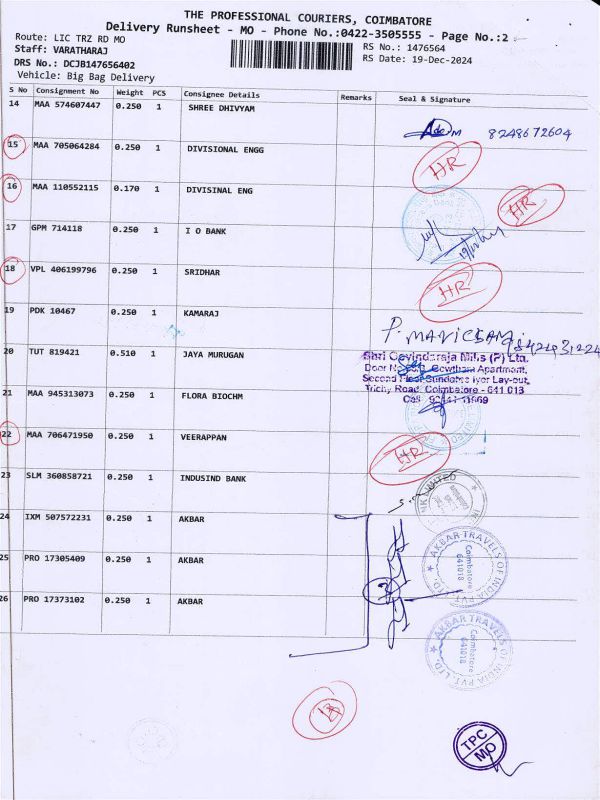 THE PROFESSIONAL COURIERS, COIMBATORE
Delivery Runsheet - MO - Phone No.:0422-3505555 - Page No.:2
Route: LIC TRZ RD MO
RS No.: 1476564
Staff: VARATHARAJ
RS Date: 19-Dec-2024
DRS No.: DCJB147656402
Vehicle: Big Bag Delivery
S No Consignment No Weight PCS Consignee Details Remarks Seal & Signature
14 MAA 574607447 0.250 1 SHREE DHIVYAM
8248672604
15 MAA 705064284 0.250 1 DIVISIONAL ENGG
HR
16 MAA 110552115 0.170 1 DIVISINAL ENG
HR
17 GPM 714118 0.250 1 I O BANK
18 VPL 406199796 0.250 1 SRIDHAR
HR
19 PDK 10467 0.250 1 KAMARAJ
20 TUT 819421 0.510 1 JAYA MURUGAN
Shri Govindaraja Mills (P) Ltd.
Gowtham Apartment,
Trichy Road, Coimbatore - 641 018
21 MAA 945313073 0.250 1 FLORA BIOCHM
22 MAA 706471950 0.250 1 VEERAPPAN
HR
23 SLM 360858721 0.250 1 INDUSIND BANK
24 IXM 507572231 0.250 1 AKBAR
25 PRO 17305409 0.250 1 AKBAR
AKBAR TRAVELS OF INDIA PVT. LTD.
Coimbatore
641018
26 PRO 17373102 0.250 1 AKBAR
AKBAR TRAVELS OF INDIA PVT. LTD.
Coimbatore
641018
TPC
MO